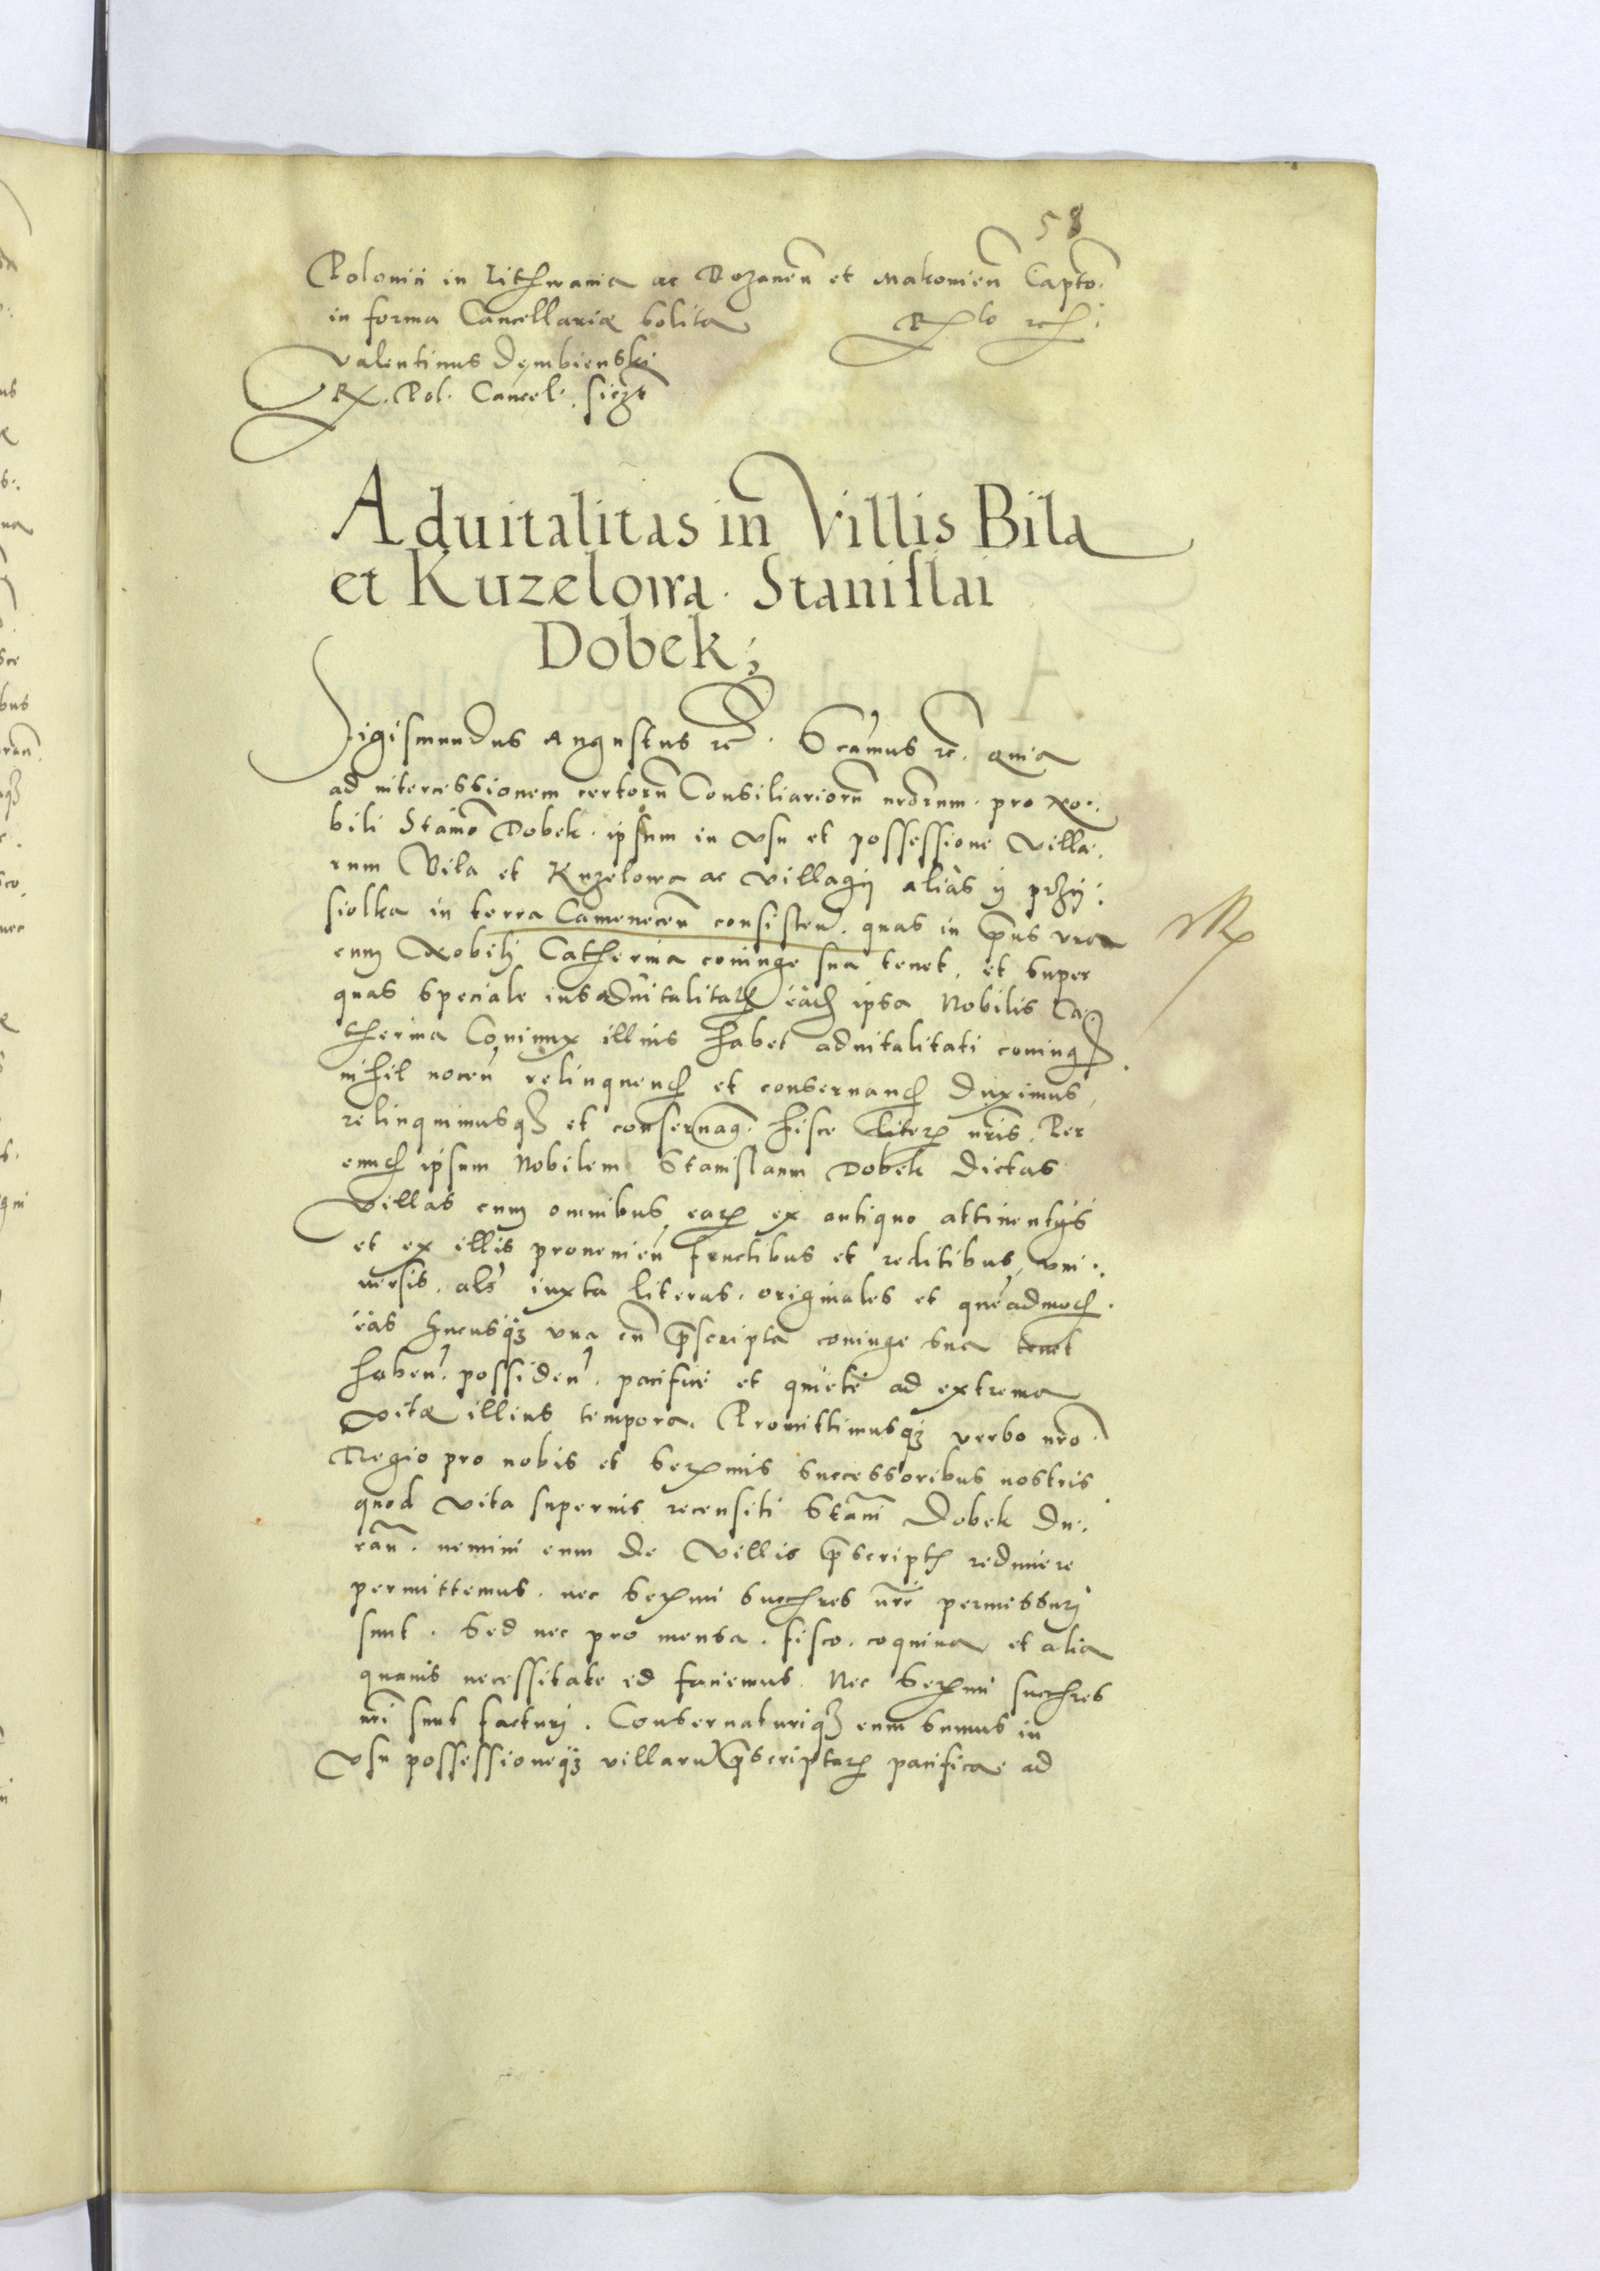 58
Polonii in Lithwania ac Rozanen̄ et Makowien̄ Captō.
in forma Cancellariæ solita
Valentinus Dembienski
R. Pol. Cancel. ſszt
Aduitalitas in Villis Bila
et Kuzelowa. Staniſlai
Dobek;
Sigismundus Augustus rc. Sca'mus rc. quia
ad intercessionem certorū Consiliariorū nr̄orum. pro No:
bili Stan̄o Dobek. ipſum in vſu et poſſeſſione villa:
rum Bila et Kuzelowa ac villagij aliàs y prżij:
siolka in terra Camenecen̄ conſiſten̄. quas in p̄ns vna
cum Nobili Catherina coniuge ſua tenet, et super
quas speciale ius aduitalitatꝭ ead ipsa Nobilis Ca:
therina Coniunx illius habet aduitalitati coniugꝭ
nihil nocen̄ relinquend et conseruand duximus,
relinquimusqꝫ et conseruamꝰ. hisce literꝭ nr̄is. Per
eund ipſum Nobilem Staniſlaum Dobek dictas
Villas cum omnibus earꝝ ex antiquo attinentijs
et ex illis prouenien̄ fructibus et reditibus, vni:
uersis. als̄ iuxta literas. originales et que'admod.
eas hucusqꝫ vna cū p̄scripta coniuge sua tenet
haben̄. poſſiden̄. pacificè et quietè ad extrema
vitæ illius tempora. Promittimusqꝫ verbo nr̄o.
Regio pro nobis et Serꝭmis successoribus nostris
quod vita superius recensiti Stan̄i Dobek du:
ran̄. nemini eum de Villis p̄scriptꝭ redimere
permittemus. nec Serꝭmi succſres nr̄i permessurj
sunt. Sed nec pro mensa. fisco. coquina et alia
quauis neceſſitate id faciemus. Nec Serꝭmi succſres
nr̄i sunt facturj. Conseruaturiqꝫ eum sumus in
Vſu poſſeſſioneqꝫ villarū p̄scriptarꝝ pacifica ad